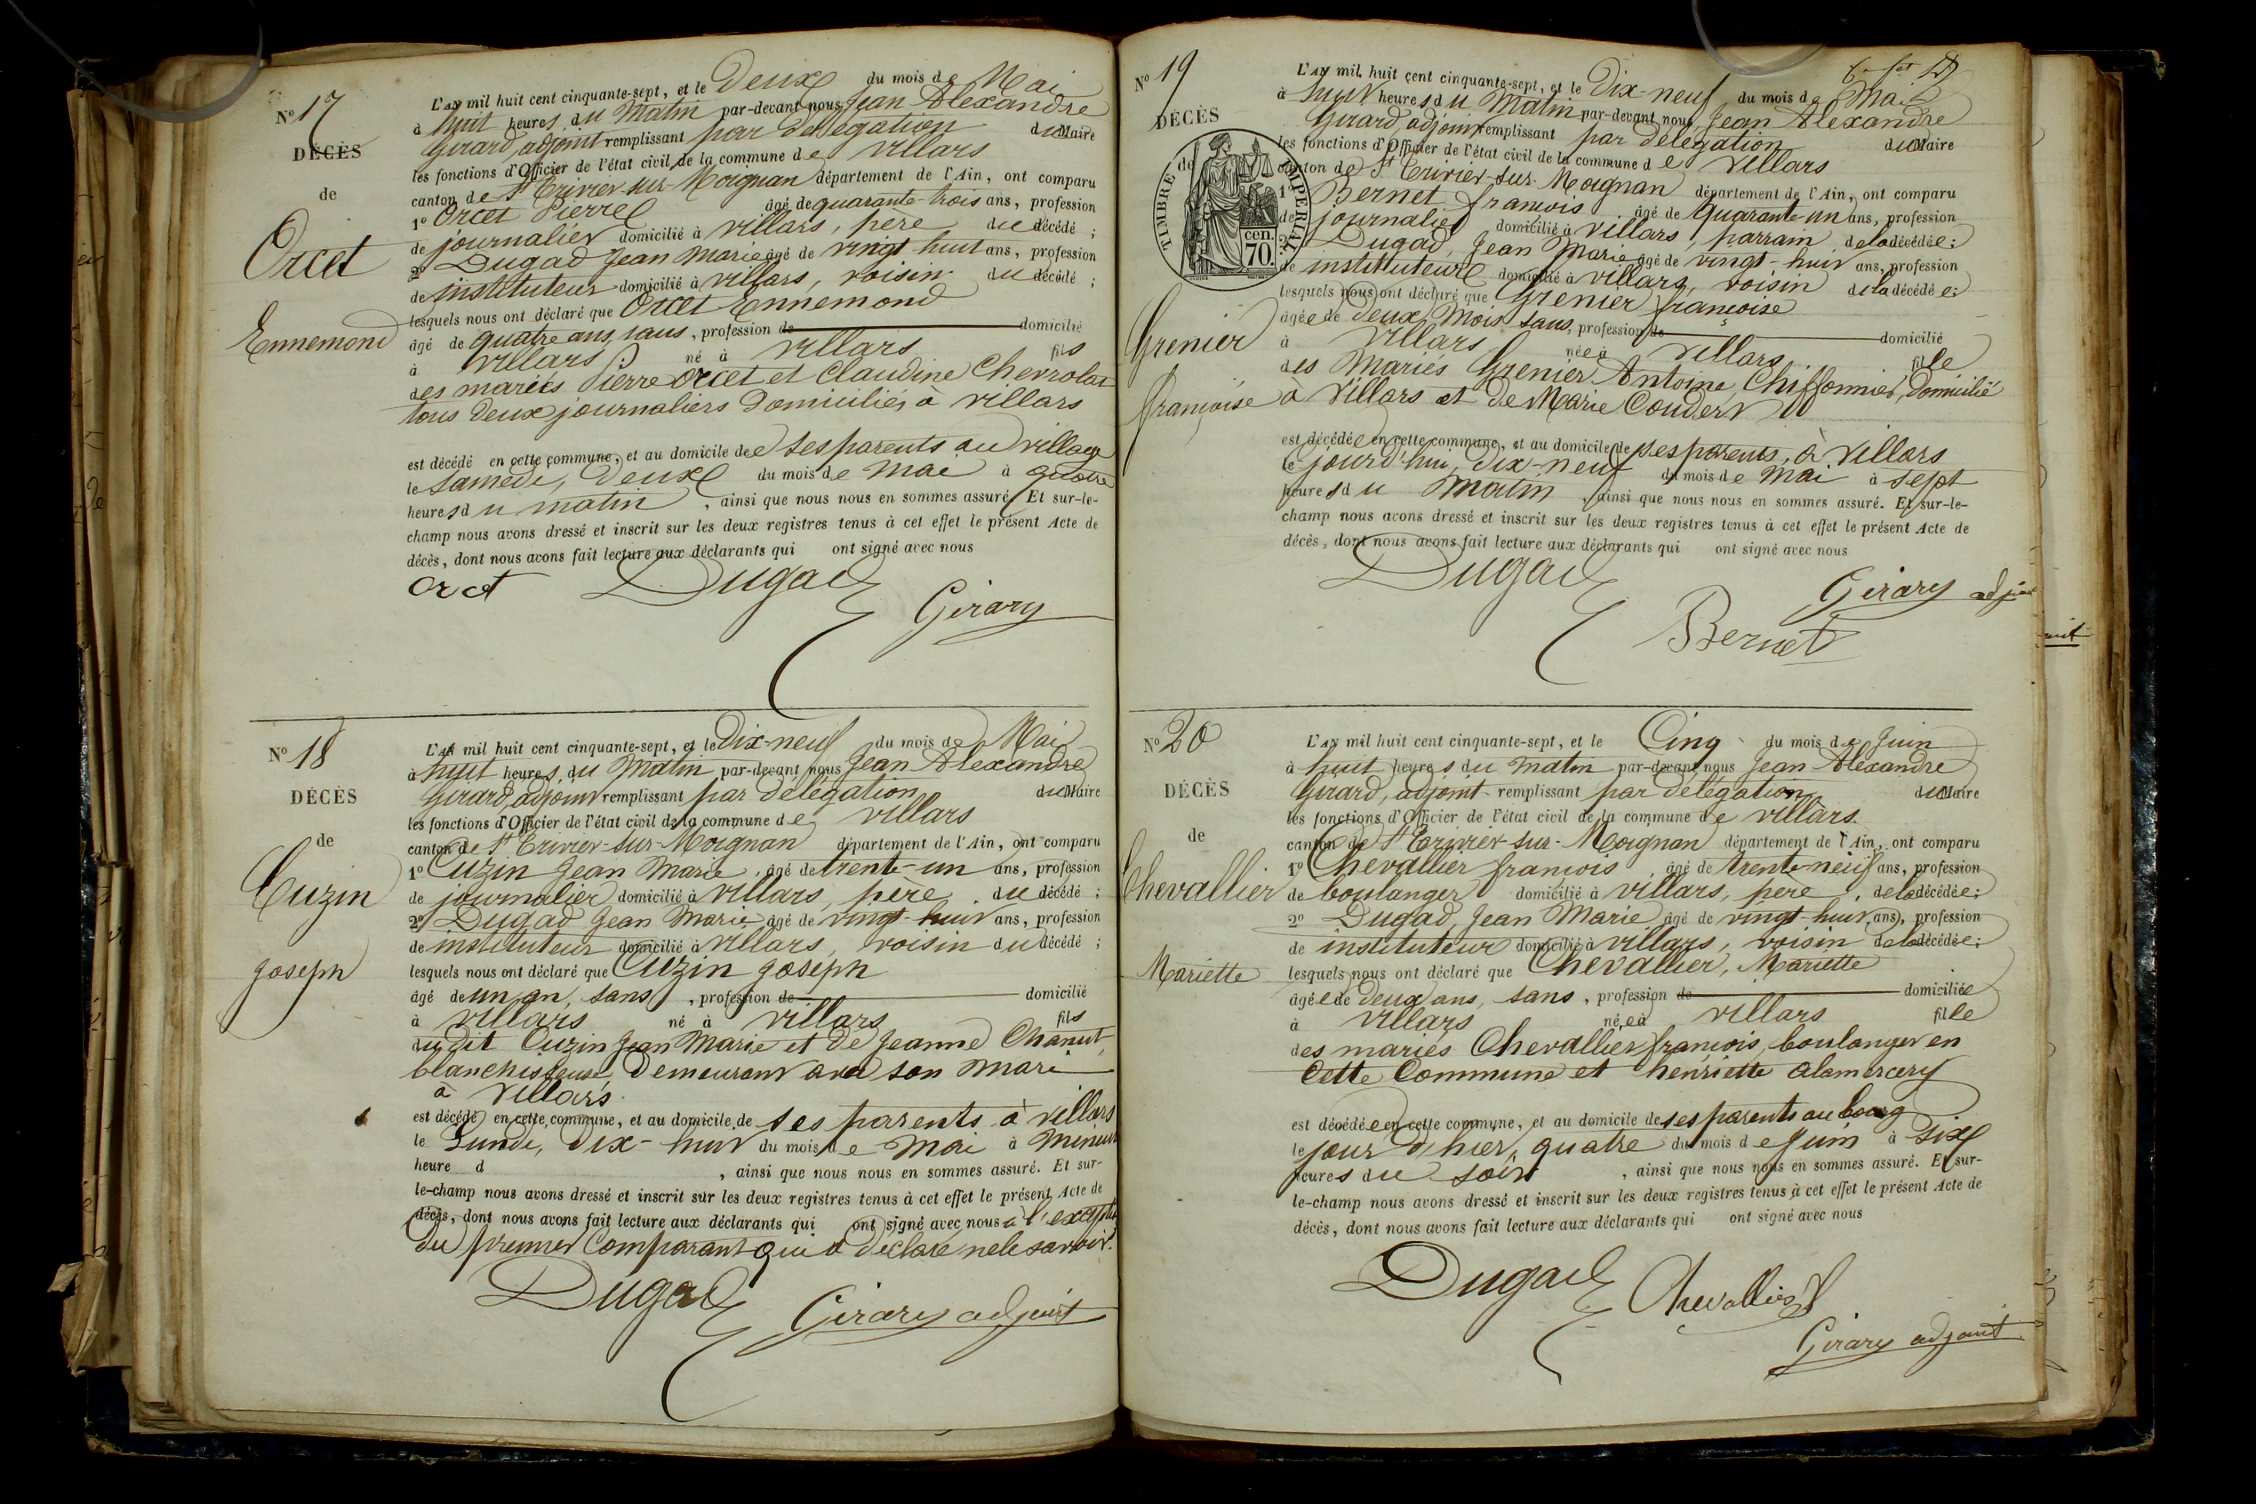 N° 17
DÉCÈS
de
Orcet
Ennemond
L'AN mil huit cent cinquante-sept, et le Deux du mois de Mai
à huit heures du Matin par-devant nous Jean Alexandre
Girard, adjoint remplissant par délégation du Maire
les fonctions d'Officier de l'état civil de la commune de villars
canton de St Trivier-sur-Moignan département de l'Ain, ont comparu
1° Orcet Pierre âgé de quarante-trois ans, profession
de journalier domicilié à villars, père du décédé ;
2° Dugad Jean Marie âgé de vingt huit ans, profession
de instituteur domicilié à villars, voisin du décédé ;
lesquels nous ont déclaré que Orcet Ennemond
âgé de quatre ans, sans, profession de domicilié
à villars né à villars fils
des mariés Pierre Orcet et Claudine Chevrolat
tous deux journaliers domiciliés à villars
est décédé en cette commune, et au domicile de ses parents au village
le samedi, Deux du mois de Mai à quatre
heures du matin, ainsi que nous nous en sommes assuré. Et sur-le-
champ nous avons dressé et inscrit sur les deux registres tenus à cet effet le présent Acte de
décès, dont nous avons fait lecture aux déclarants qui ont signé avec nous
Orcet Dugad Girard
N° 18
DÉCÈS
de
Cuzin
joseph
L'AN mil huit cent cinquante-sept, et le Dix-neuf du mois de Mai
à huit heures du Matin par-devant nous Jean Alexandre
Girard, adjoint remplissant par délégation du Maire
les fonctions d'Officier de l'état civil de la commune de villars
canton de St Trivier-sur-Moignan département de l'Ain, ont comparu
1° Cuzin Jean Marie, âgé de trente-un ans, profession
de journalier domicilié à villars, père du décédé ;
2° Dugad Jean Marie âgé de vingt-huit ans, profession
de instituteur domicilié à villars, voisin du décédé ;
lesquels nous ont déclaré que Cuzin joseph
âgé de un an, sans, profession de domicilié
à villars né à villars fils
du dit Cuzin Jean Marie et de Jeanne Chanut,
blanchisseuse Demeurant avec son mari
à villars.
est décédé en cette commune, et au domicile de ses parents à villars
le Lundi, Dix-huit du mois de Mai à Minuit
heure d , ainsi que nous nous en sommes assuré. Et sur-
le-champ nous avons dressé et inscrit sur les deux registres tenus à cet effet le présent Acte de
décès, dont nous avons fait lecture aux déclarants qui ont signé avec nous à l'exception
du premier Comparant qui a déclaré ne le savoir.
Dugad Girard adjoint
N° 19
DÉCÈS
de
TIMBRE IMPERIAL
cen.
70.
Grenier
françoise
L'AN mil huit cent cinquante-sept, et le Dix-neuf du mois de Mai
à huit heures du Matin par-devant nous Jean Alexandre
Girard, adjoint remplissant par délégation du Maire
les fonctions d'Officier de l'état civil de la commune de villars
canton de St Trivier-sur-Moignan département de l'Ain, ont comparu
1° Bernet françois âgé de Quarante-un ans, profession
de journalier domicilié à villars, parrain de la décédée ;
2° Dugad, Jean Marie âgé de vingt-huit ans, profession
de instituteur domicilié à villars, voisin de la décédée ;
lesquels nous ont déclaré que Grenier françoise
âgée de Deux Mois sans, profession de domicilié
à villars née à villars fille
des Mariés Grenier Antoine, Chiffonnier, Domicilié
à villars et de Marie Coudert
est décédée en cette commune, et au domicile de ses parents, à villars
le jourd'hui, dix-neuf du mois de Mai à sept
heures du matin, ainsi que nous nous en sommes assuré. Et sur-le-
champ nous avons dressé et inscrit sur les deux registres tenus à cet effet le présent Acte de
décès, dont nous avons fait lecture aux déclarants qui ont signé avec nous
Dugad Girard adjoint
Bernet
N° 20
DÉCÈS
de
Chevallier
Mariette
L'AN mil huit cent cinquante-sept, et le Cinq du mois de Juin
à huit heures du matin par-devant nous Jean Alexandre
Girard, adjoint remplissant par délégation du Maire
les fonctions d'Officier de l'état civil de la commune de villars
canton de St Trivier-sur-Moignan département de l'Ain, ont comparu
1° Chevallier françois âgé de trente-neuf ans, profession
de boulanger domicilié à villars, père de la décédée ;
2° Dugad, Jean Marie âgé de vingt-huit ans, profession
de instituteur domicilié à villars, voisin de la décédée ;
lesquels nous ont déclaré que Chevallier, Mariette
âgée de Deux ans, sans, profession de domiciliée
à villars née à villars fille
des mariés Chevallier françois, boulanger en
Cette Commune et henriette alamercery
est décédée en cette commune, et au domicile de ses parents au bourg
le jour d'hier, quatre du mois de Juin à six
heures du soir, ainsi que nous nous en sommes assuré. Et sur-
le-champ nous avons dressé et inscrit sur les deux registres tenus à cet effet le présent Acte de
décès, dont nous avons fait lecture aux déclarants qui ont signé avec nous
Dugad Chevallier
Girard adjoint